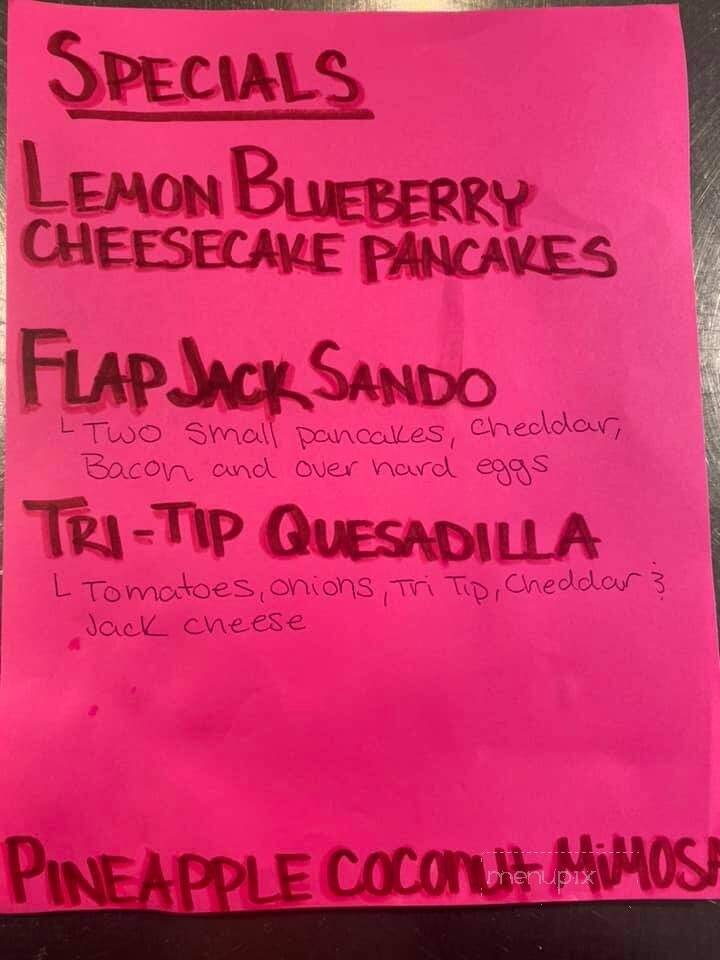 SPECIALS
LEMON BLUEBERRY
CHEESECAKE PANCAKES
FLAP JACK SANDO
└ Two small pancakes, cheddar,
Bacon and over hard eggs
TRI-TIP QUESADILLA
└ Tomatoes, onions, Tri Tip, Cheddar &
Jack cheese
PINEAPPLE COCONUT MIMOSA
menupix